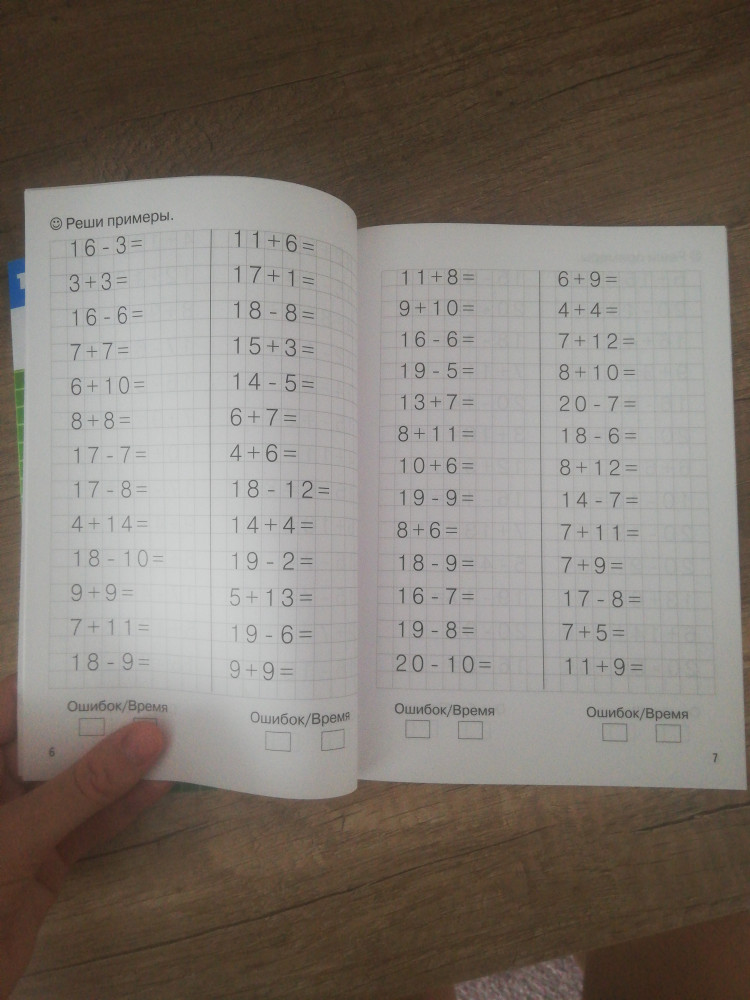 Реши примеры.
16 - 3 =
3 + 3 =
16 - 6 =
7 + 7 =
6 + 10 =
8 + 8 =
17 - 7 =
17 - 8 =
4 + 14 =
18 - 10 =
9 + 9 =
7 + 11 =
18 - 9 =
Ошибок/Время
11 + 6 =
17 + 1 =
18 - 8 =
15 + 3 =
14 - 5 =
6 + 7 =
4 + 6 =
18 - 12 =
14 + 4 =
19 - 2 =
5 + 13 =
19 - 6 =
9 + 9 =
Ошибок/Время
6
11 + 8 =
9 + 10 =
16 - 6 =
19 - 5 =
13 + 7 =
8 + 11 =
10 + 6 =
19 - 9 =
8 + 6 =
18 - 9 =
16 - 7 =
19 - 8 =
20 - 10 =
Ошибок/Время
6 + 9 =
4 + 4 =
7 + 12 =
8 + 10 =
20 - 7 =
18 - 6 =
8 + 12 =
14 - 7 =
7 + 11 =
7 + 9 =
17 - 8 =
7 + 5 =
11 + 9 =
Ошибок/Время
7